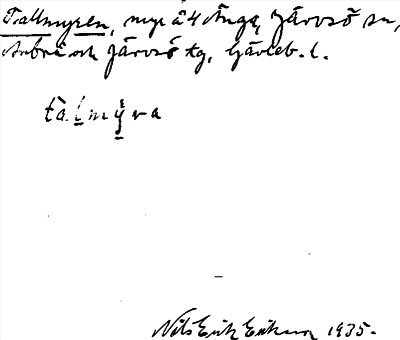 Tallmyren, myr å 4 Änga, Järvsö sn,
Arbrå och Järvsö tg, Gävleb. l.
tàlmy̆ra
Nils Erik Eriksson 1935.